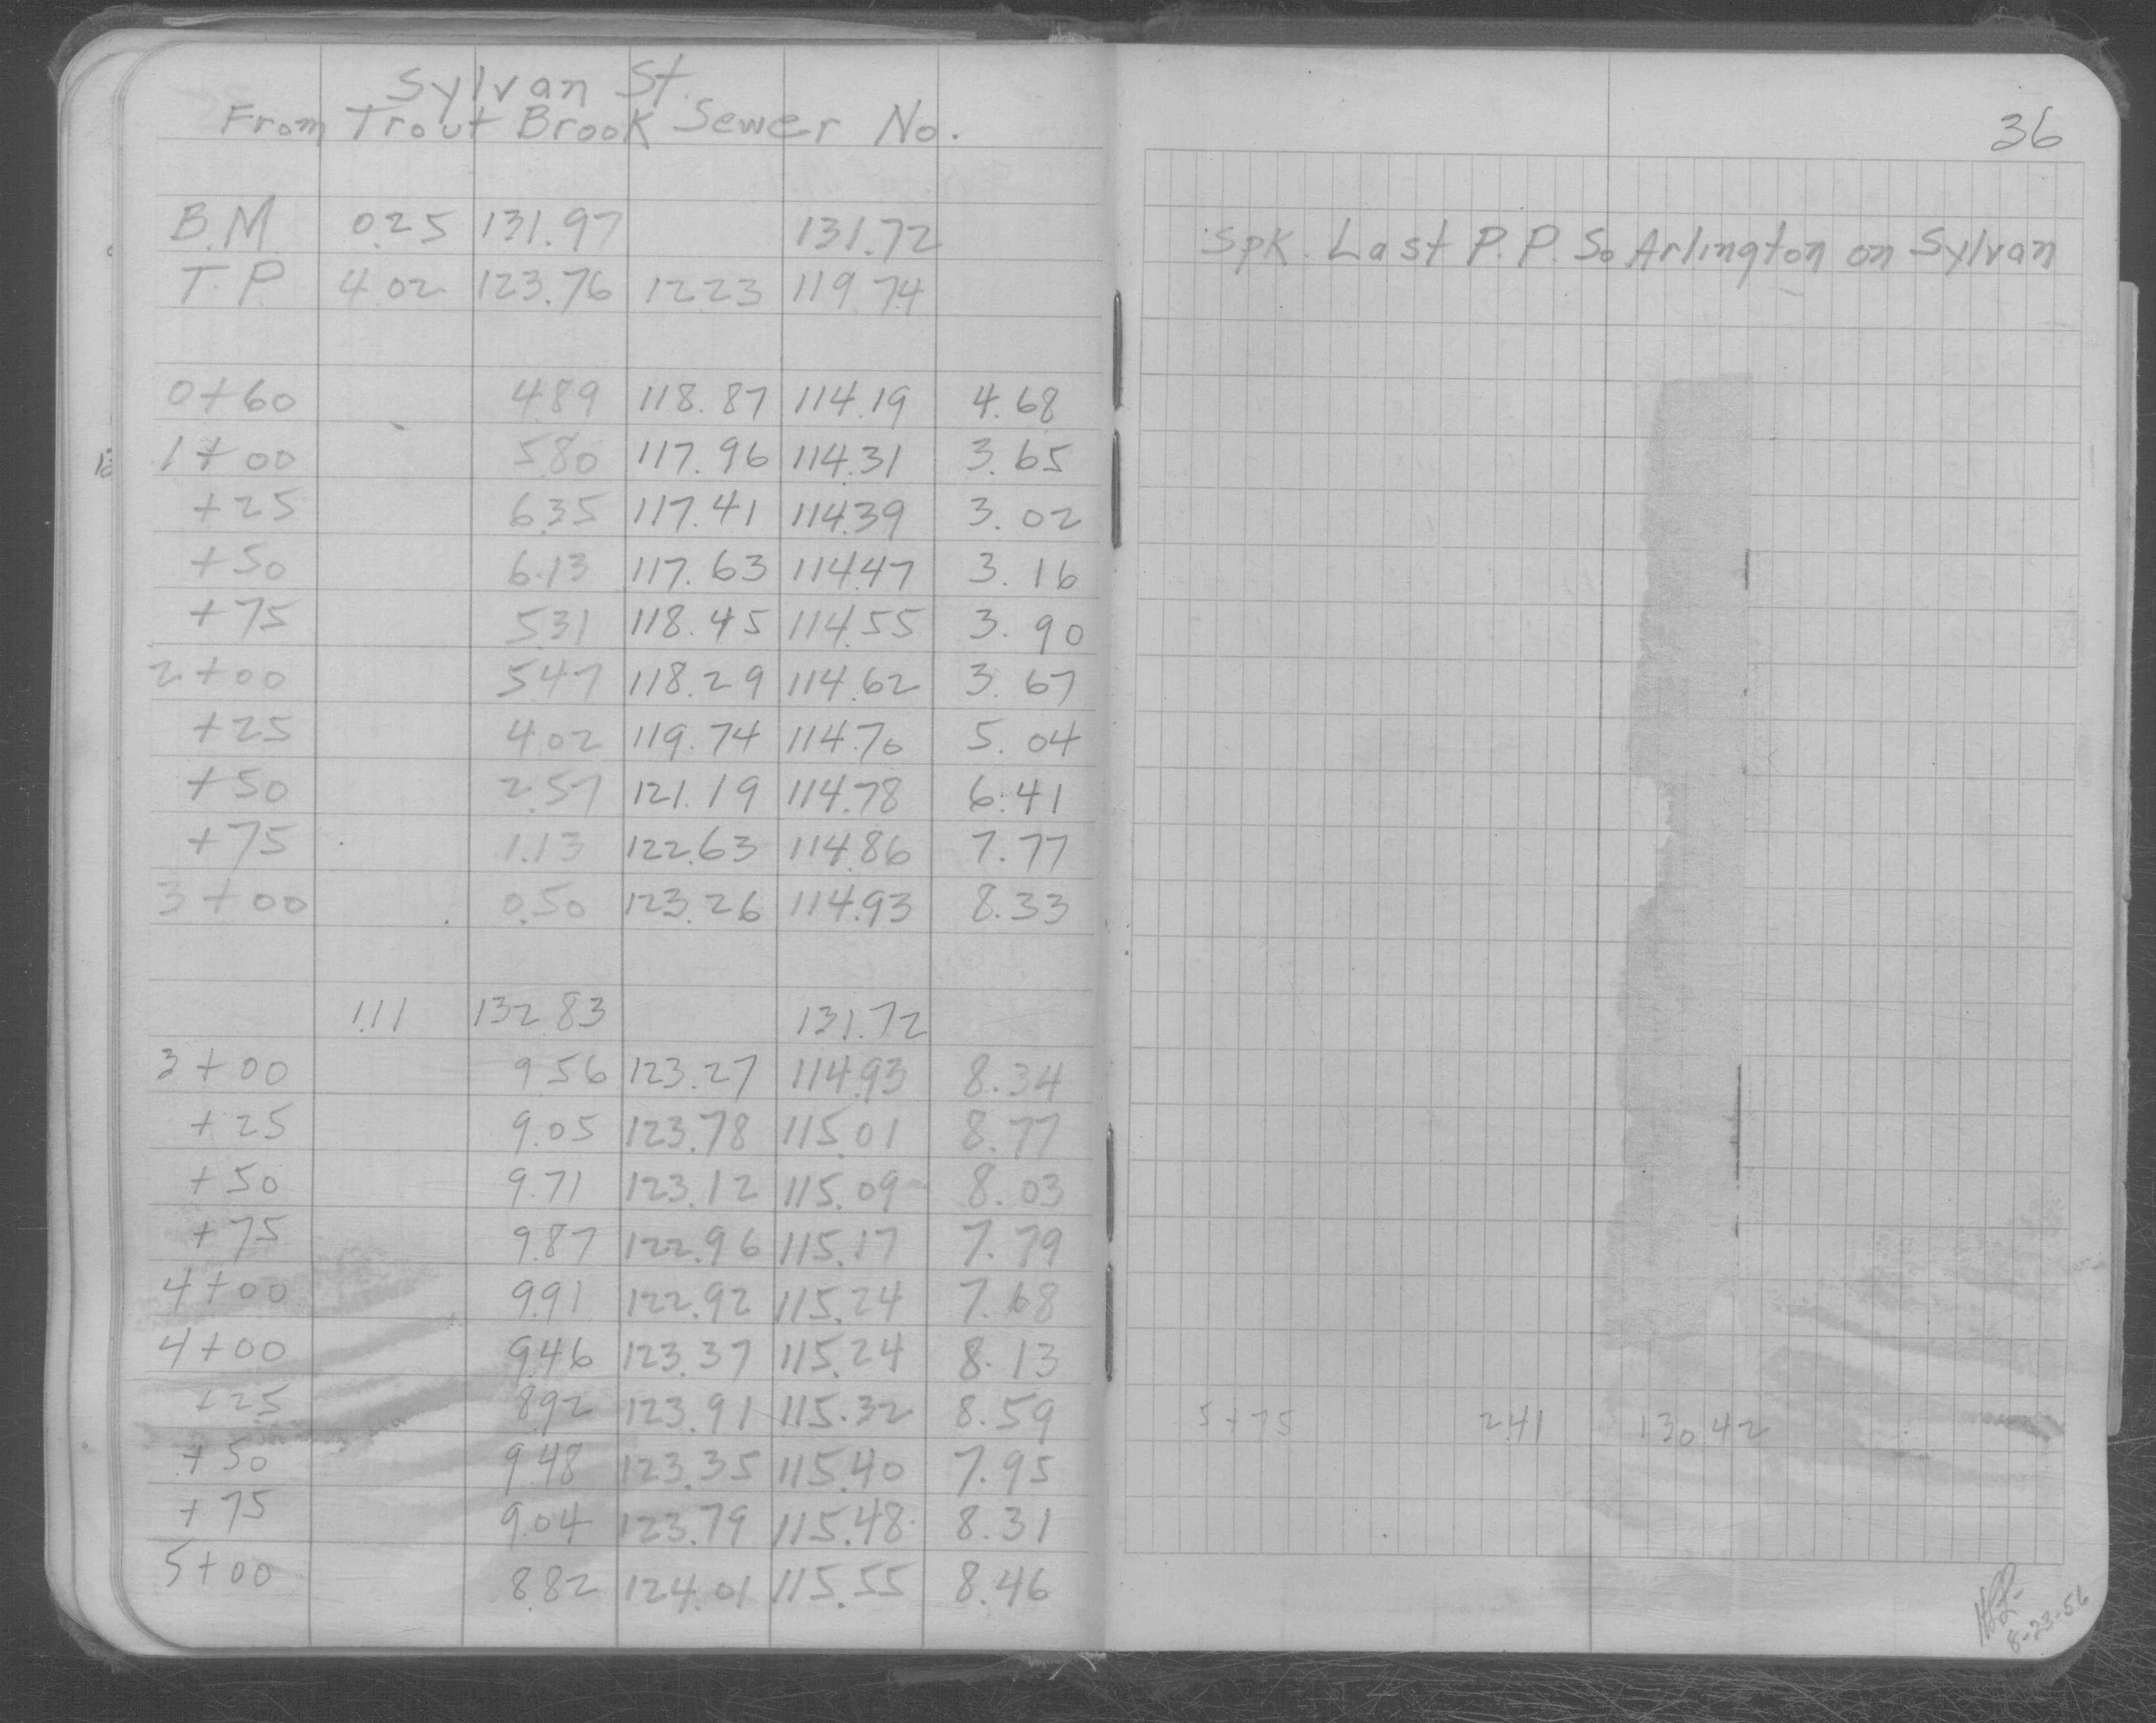 Sylvan St.
From Trout Brook Sewer No.
B.M 0.25 131.97 131.72
T.P. 4.02 123.76 12.23 119.74
0+60 4.89 118.87 114.19 4.68
1+00 5.80 117.96 114.31 3.65
+25 6.35 117.41 114.39 3.02
+50 6.13 117.63 114.47 3.16
+75 5.31 118.45 114.55 3.90
2+00 5.47 118.29 114.62 3.67
+25 4.02 119.74 114.70 5.04
+50 2.57 121.19 114.78 6.41
+75 1.13 122.63 114.86 7.77
3+00 0.50 123.26 114.93 8.33
1.11 132.83 131.72
3+00 9.56 123.27 114.93 8.34
+25 9.05 123.78 115.01 8.77
+50 9.71 123.12 115.09 8.03
+75 9.87 122.96 115.17 7.79
4+00 9.91 122.92 115.24 7.68
4+00 9.46 123.37 115.24 8.13
+25 8.92 123.91 115.32 8.59
+50 9.48 123.35 115.40 7.95
+75 9.04 123.79 115.48 8.31
5+00 8.82 124.01 115.55 8.46
36
Spk. Last P.P. So Arlington on Sylvan
5+75 2.41 130.42
8-23-56